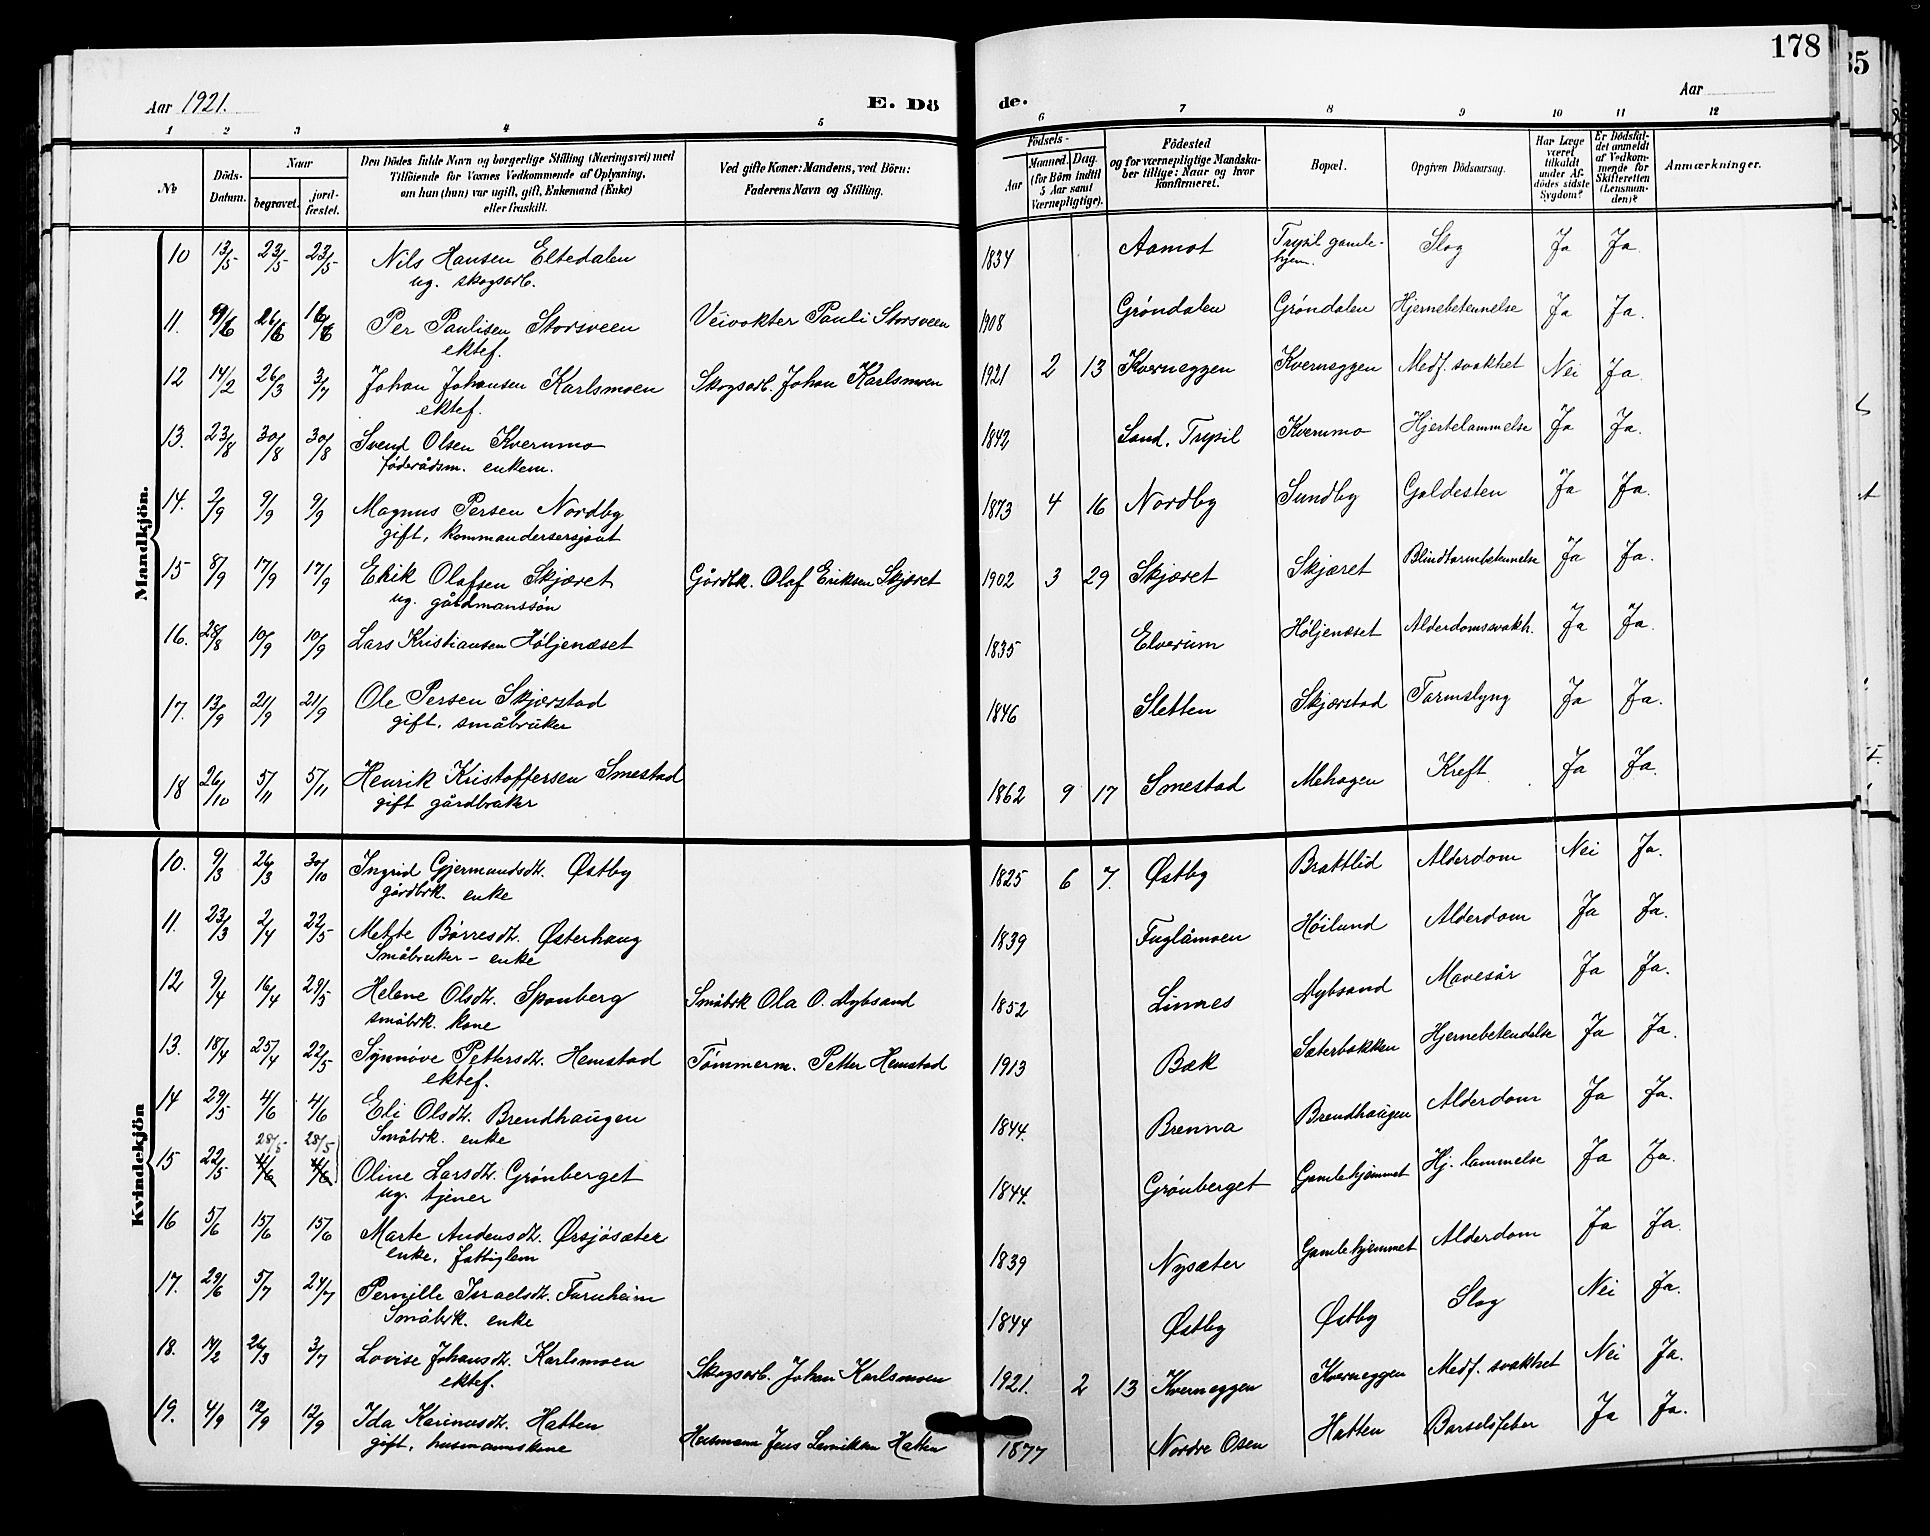 178
35
Aar 1921.
E. Dö
de.
Aar
1 2 3 4 5 6 7 8 9 10 11 12
No
Döds-Datum.
Naar
begravet.
jord-fæstet.
Den Dödes fulde Navn og borgerlige Stilling (Næringsvei) med
Tilföiende for Voxnes Vedkommende af Oplysning,
om han (hun) var ugift, gift, Enkemand (Enke)
eller fraskilt.
Ved gifte Koner: Mandens, ved Börn:
Faderens Navn og Stilling.
Födsels-
Aar
Maaned. Dag.
(for Börn indtil
5 Aar samt
Værnepligtige).
Födested
og for værnepligtige Mandska-
ber tillige: Naar og hvor
konfirmeret.
Bopæl.
Opgiven Dödsaarsag.
Har Læge
været
tilkaldt
under Af-
dödes sidste
Sygdom?
Er Dödsfal-
det anmeldt
af Vedkom-
mende for
Skifteretten
(Lensman-
den)?
Anmærkninger.
Mandkjön.
10 13/5 23/5 23/5 Nils Hansen Eltedalen 1834 Aamot Trysil gamle- Slag Ja Ja.
ug. skogsarb. hjem.
11. 9/6 26/6 16/6 Per Paulisen Storsveen Veivokter Pauli Storsveen 1908 Grøndalen Grøndalen Hjernebetennelse Ja Ja.
ektef.
12 14/2 26/3 3/7 Johan Johansen Karlsmoen Skogsarb. Johan Karlsmoen 1921 2 13 Kverneggen Kverneggen Medf. svakhet Nei Ja.
ektef.
13. 23/8 30/8 30/8 Svend Olsen Kverumo 1842 Sand, Trysil Kverumo Hjertelammelse Ja Ja.
føderådsm. enkem.
14. 2/9 9/9 9/9 Magnus Persen Nordby 1873 4 16 Nordby Sundby Galdesten Ja Ja.
gift, kommandersersjant
15 8/9 17/9 17/9 Erik Olafsen Skjæret Gårdbk. Olaf Eriksen Skjæret 1902 3 29 Skjæret Skjæret Blindtarmbetennelse Ja Ja.
ug. gårdmanssøn
16. 28/8 10/9 10/9 Lars Kristiansen Høljenæset 1835 Elverum Høljenæset Alderdomssvakh. Ja Ja.
17. 13/9 21/9 21/9 Ole Persen Skjærstad 1846 Sletten Skjærstad Tarmslyng Ja Ja.
gift, småbruker
18 26/10 5/11 5/11 Henrik Kristoffersen Smestad 1862 9 17 Smestad Mehagen Kreft. Ja Ja.
gift gårdbruker
Kvindekjön
10. 9/3 26/3 30/10 Ingrid Gjermundsdt. Østby 1825 6 7. Østby Brattlid Alderdom Nei Ja.
gårdbrk. enke
11. 23/3 2/4 22/5 Mette Børresdt. Østerhaug 1839 Fuglåmoen Høilund Alderdom Ja Ja.
Småbruker - enke
12 9/4 16/4 29/5 Helene Olsdt. Sponberg Småbrk Ola O. Nybsand 1852 Linnes Nybsand Mavesår Ja Ja.
småbrk. kone
13. 18/4 25/4 22/5 Synnøve Pettersdt. Hemstad Tømmerm. Petter Hemstad 1913 Bæk Sæterbakken Hjernebetendelse Ja Ja.
ektef.
14 29/5 4/6 4/6 Eli Olsdt. Brendhaugen 1844. Brenna Brendhaugen Alderdom Ja Ja.
Småbrk. enke
28/5 28/5
15 22/5 4/6 4/6 Oline Larsdt. Grønberget 1844. Grønberget Gamlehjemmet Hj. lammelse Ja Ja.
ug. tjener
16 5/6 15/6 15/6 Marte Andersdt. Ørsjøsæter 1839 Nysæter Gamlehjemmet Alderdom Ja Ja.
enke, fattiglem
17. 29/6 5/7 24/7 Pernille Israelsdt. Furuheim 1844 Østby Østby Slag Nei Ja.
Småbrk. enke
18. 14/2 26/3 3/7 Lovise Johansdt. Karlsmoen Skogsarb. Johan Karlsmoen 1921. 2 13 Kverneggen Kverneggen Medf. svakhet Nei Ja.
ektef.
19. 4/9 12/9 12/9 Ida Karinusdt. Hatten Husmann Jens Hatten 1877 Nordre Osen Hatten Barselsfeber Ja Ja.
gift, husmannskone